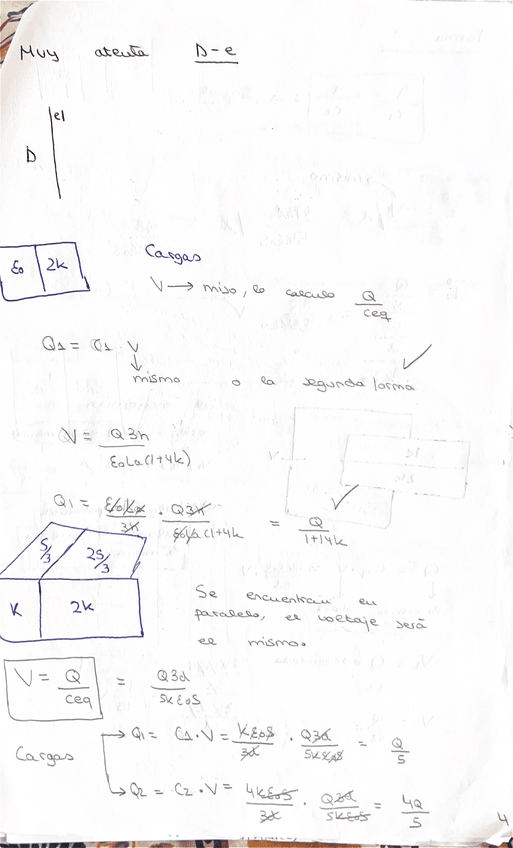 Muy atenta D-e
el
D
ε0 2k
Cargas
V → miso, lo calculo Q/Ceq
Q1 = C1 V
mismo o la segunda forma
V = Q3h / ε0La(1+4k)
Q1 = ε0La/3h · Q3h/ε0La(1+4k) = Q/1+4k
S/3 2S/3
K 2k
Se encuentran en
paralelo, el voltaje será
el mismo.
V = Q/Ceq = Q3d/5kε0S
Q1 = C1·V = kε0S/3d · Q3d/5kε0S = Q/5
Cargas
Q2 = C2·V = 4kε0S/3d · Q3d/5kε0S = 4Q/5
4